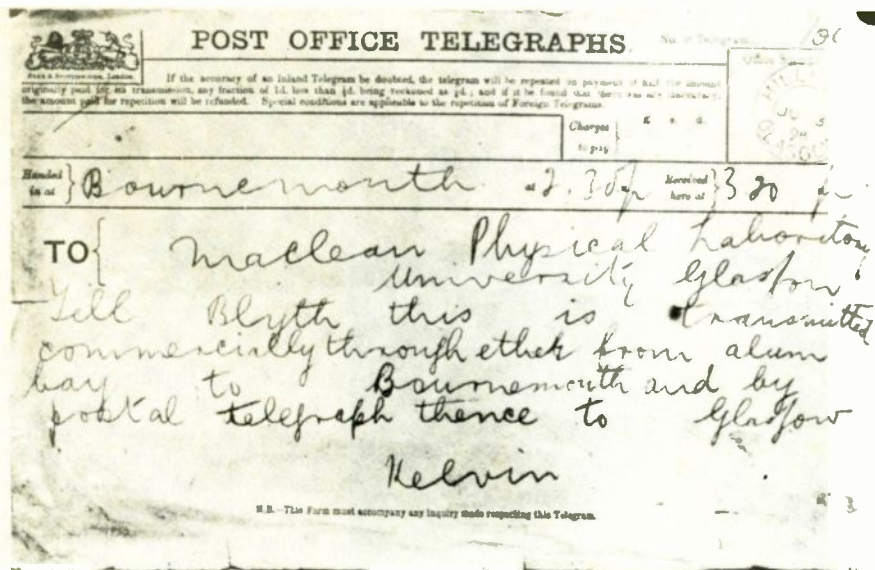 POST OFFICE TELEGRAPHS.
No. of Telegram
If the accuracy of an Inland Telegram be doubted, the telegram will be repeated on payment of half the amount
originally paid for its transmission, any fraction of 1d. less than ½d. being reckoned as ½d.; and if it be found that there was any inaccuracy,
the amount paid for repetition will be refunded. Special conditions are applicable to the repetition of Foreign Telegrams.
Charges to pay
£ s. d.
Handed in at Bournemouth at 2.30 p Received here at 3 20 p
TO Maclean Physical Laboratory
University Glasgow
Tell Blyth this is transmitted
commercially through ether from alum
bay to Bournemouth and by
postal telegraph thence to Glasgow
Kelvin
N.B.—This Form must accompany any inquiry made respecting this Telegram.